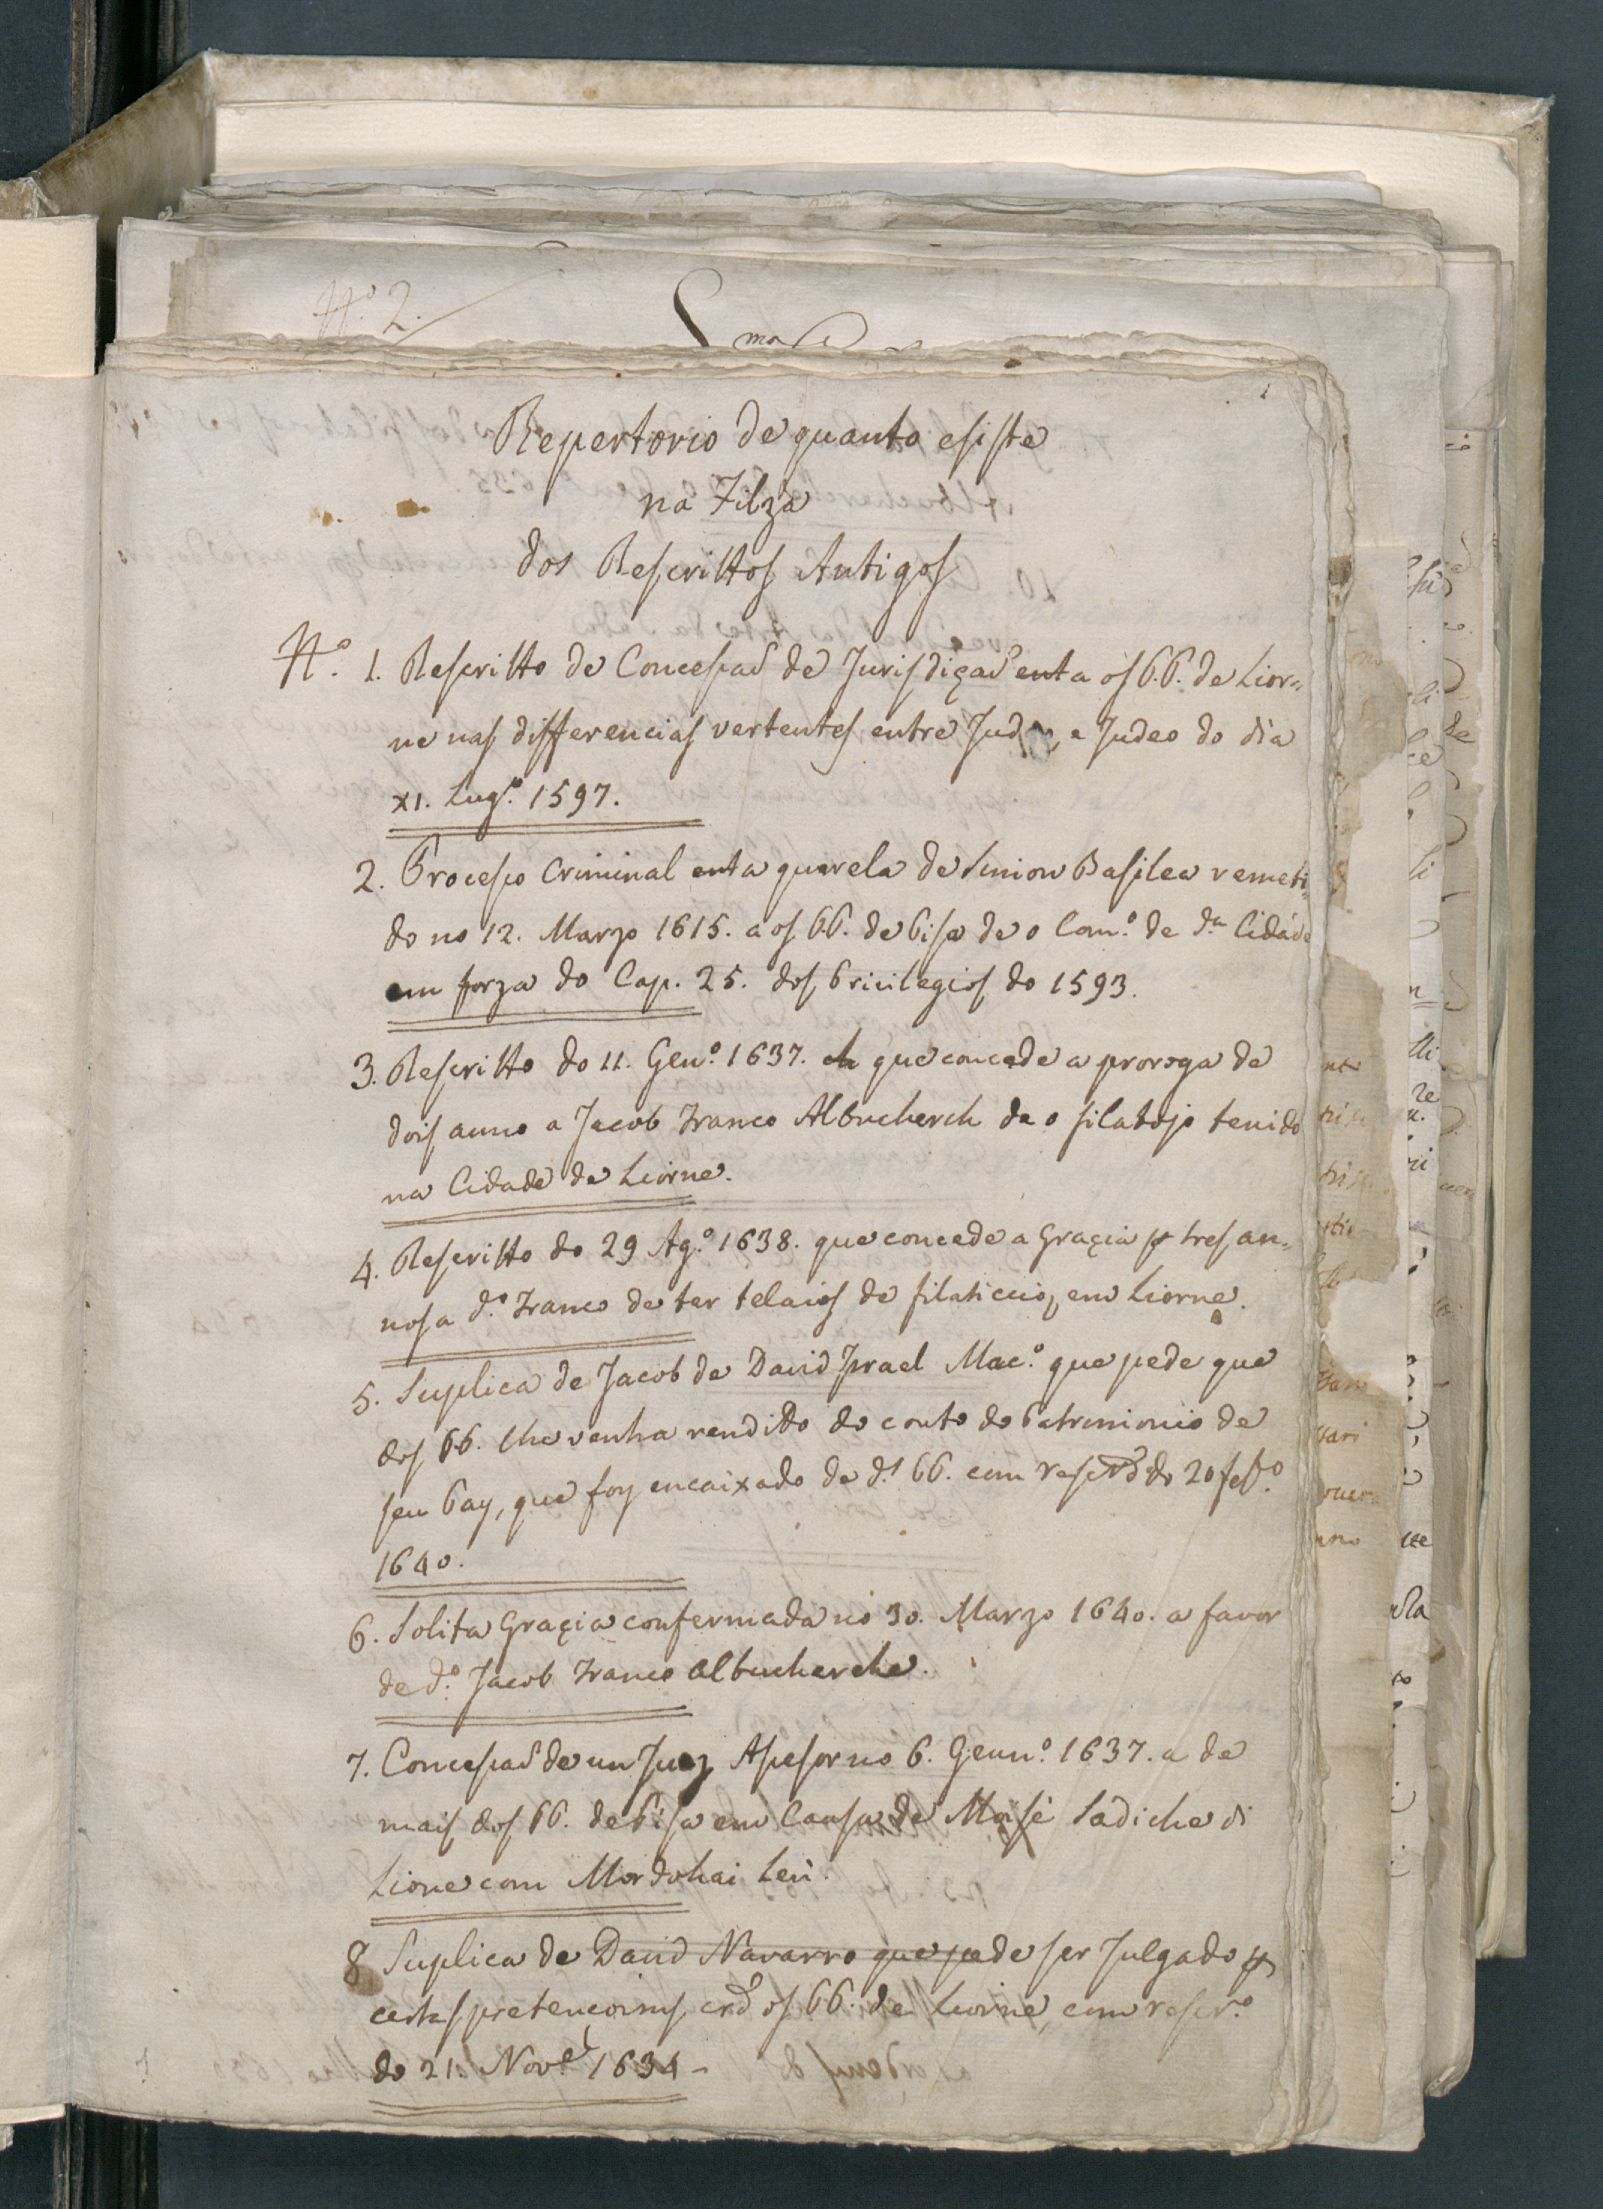 Nº 2.
Repertorio de quanto esiste
na Filza
dos Rescrittos Antigos
Nº. 1. Rescritto de Concessaõ de Jurisdiçaõ enta os PP. de Lior=
ne nas differencias vertentes entre Judeo, e Judeo do dia
XI. Lugº. 1597.
2. Processo Criminal enta querela de Simion Basilea remeti=
do no 12. Marzo 1615. a os PP. de Pisa de o Comº. de dª. Cidade
em forza do Cap. 25. dos Privilegios do 1593.
3. Rescritto do 11. Genº. 1637. que concede a proroga de
dois anno a Jacob Franco Albucherch de o filatojo tenido
na Cidade de Liorne.
4. Rescritto do 29 Agº. 1638. que concede a Graçia p tres an=
nos a dº. Franco de ter telaios de filaticcio, em Liorne.
5. Suplica de Jacob de David Israel Macº. que pede que
dos PP. lhe venha renditto do conto do Patrimonio de
seu Pay, que foy encaixado de dˢ. PP. com do 20 febº.
1640.
6. Solita Graçia confermada no 30. Marzo 1640. a favor
de dº. Jacob Franco Albucherche.
7. Concessaõ de un Juez Assessor no 6. Gennº. 1637. a de
mais dos PP. de Pisa em Causa de Moisè Sadiche di
Lione com Mordohai Levi.
8 Suplica de David Navarro que pede ser Julgado p
certas pretencoims, os PP. de Liorne, com rescrº.
do 21. Novᵉ 1634 -
1